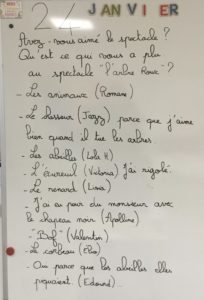 24 JANVIER
Avez-vous aimé le spectacle ?
Qu'est ce qui vous a plu
au spectacle "l'arbre Roux" ?
- Les animaux (Romane)
- Le chasseur (Jazzy) parce que j'aime
bien quand il tue les arbres
- Les abeilles (Lola H)
- L'écureuil (Victoria) J'ai rigolé.
- Le renard (Livia)
- J'ai eu peur du monsieur avec
le chapeau noir (Apolline)
- "Bof" (Valentin)
- Le corbeau (Elio)
- Oui parce que les abeilles elles
piquaient. (Edouard)...